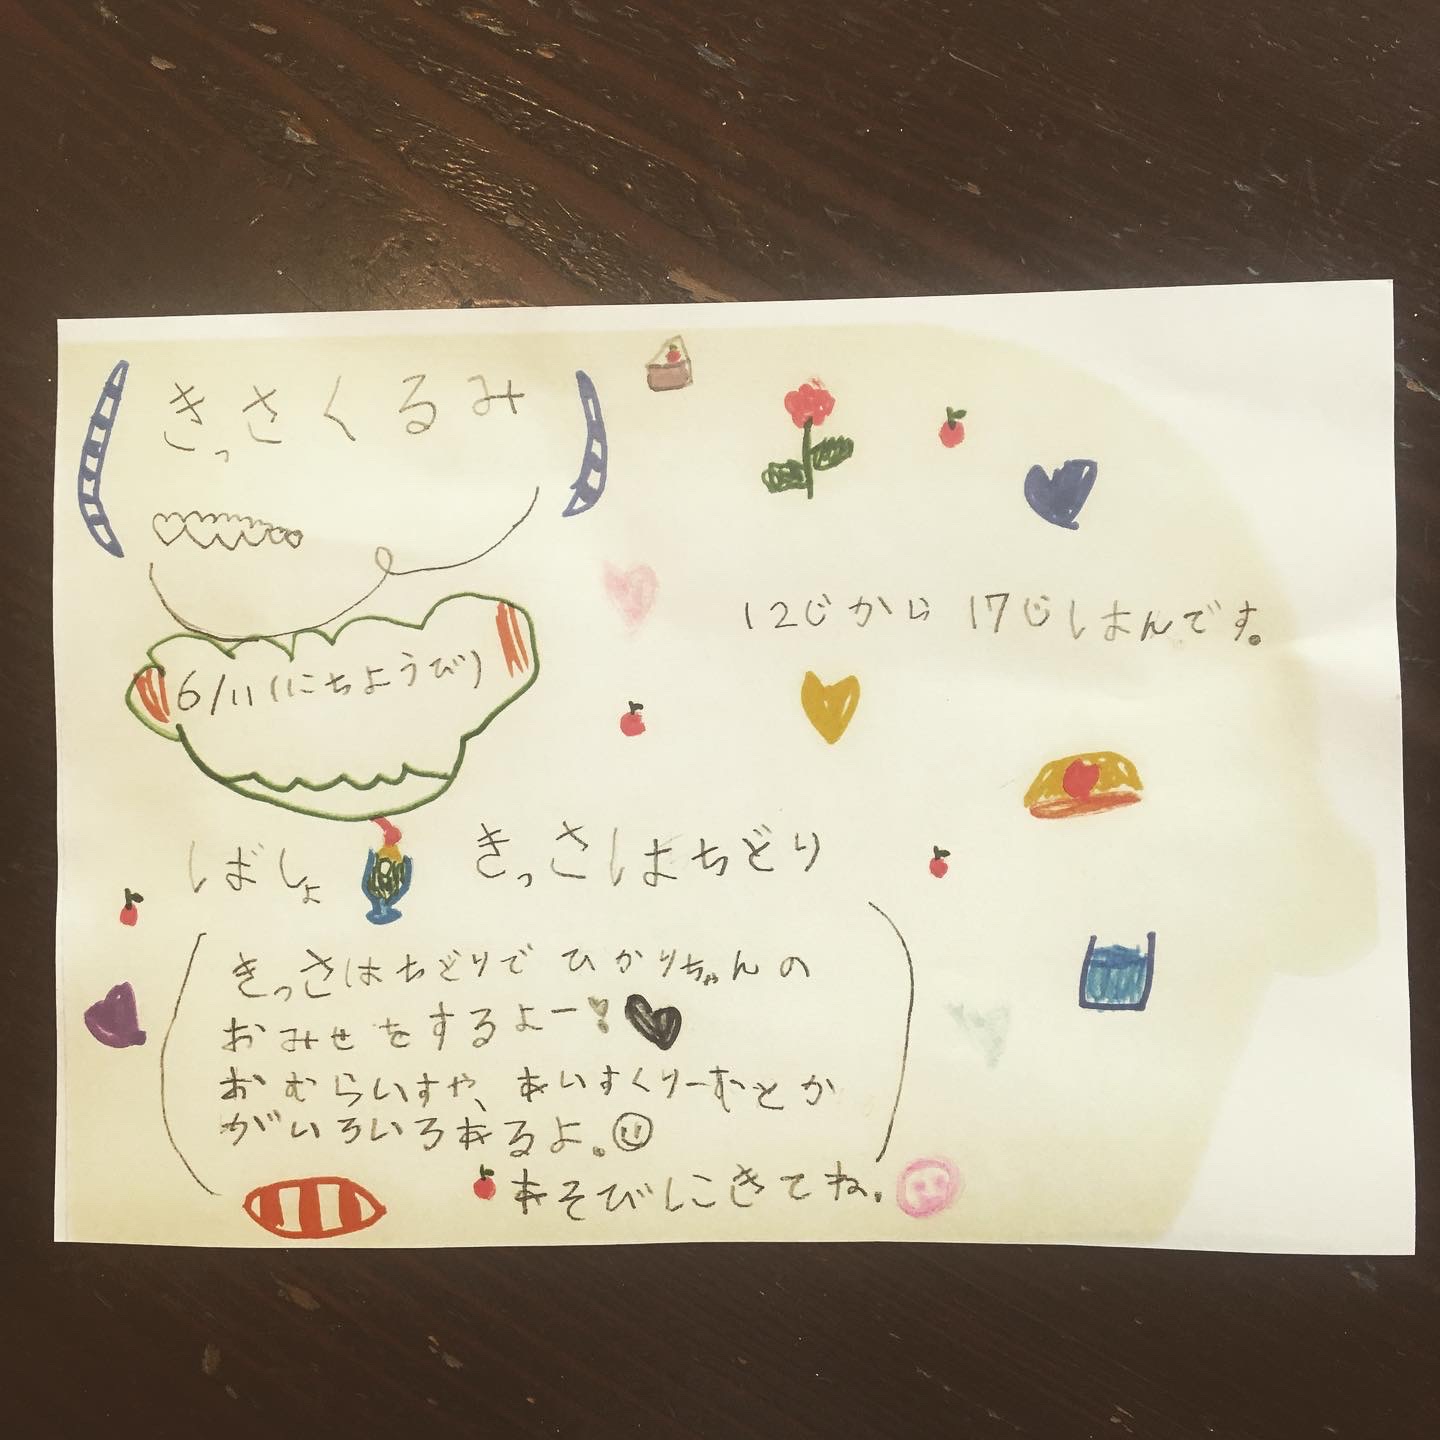 きっさくるみ
12じから 17じはんです。
6/11(にちようび)
ばしょ
きっさはちどり
きっさはちどりで ひかりちゃんの
おみせをするよー!
おむらいすや、あいすくりーむとか
がいろいろあるよ。
あそびにきてね。